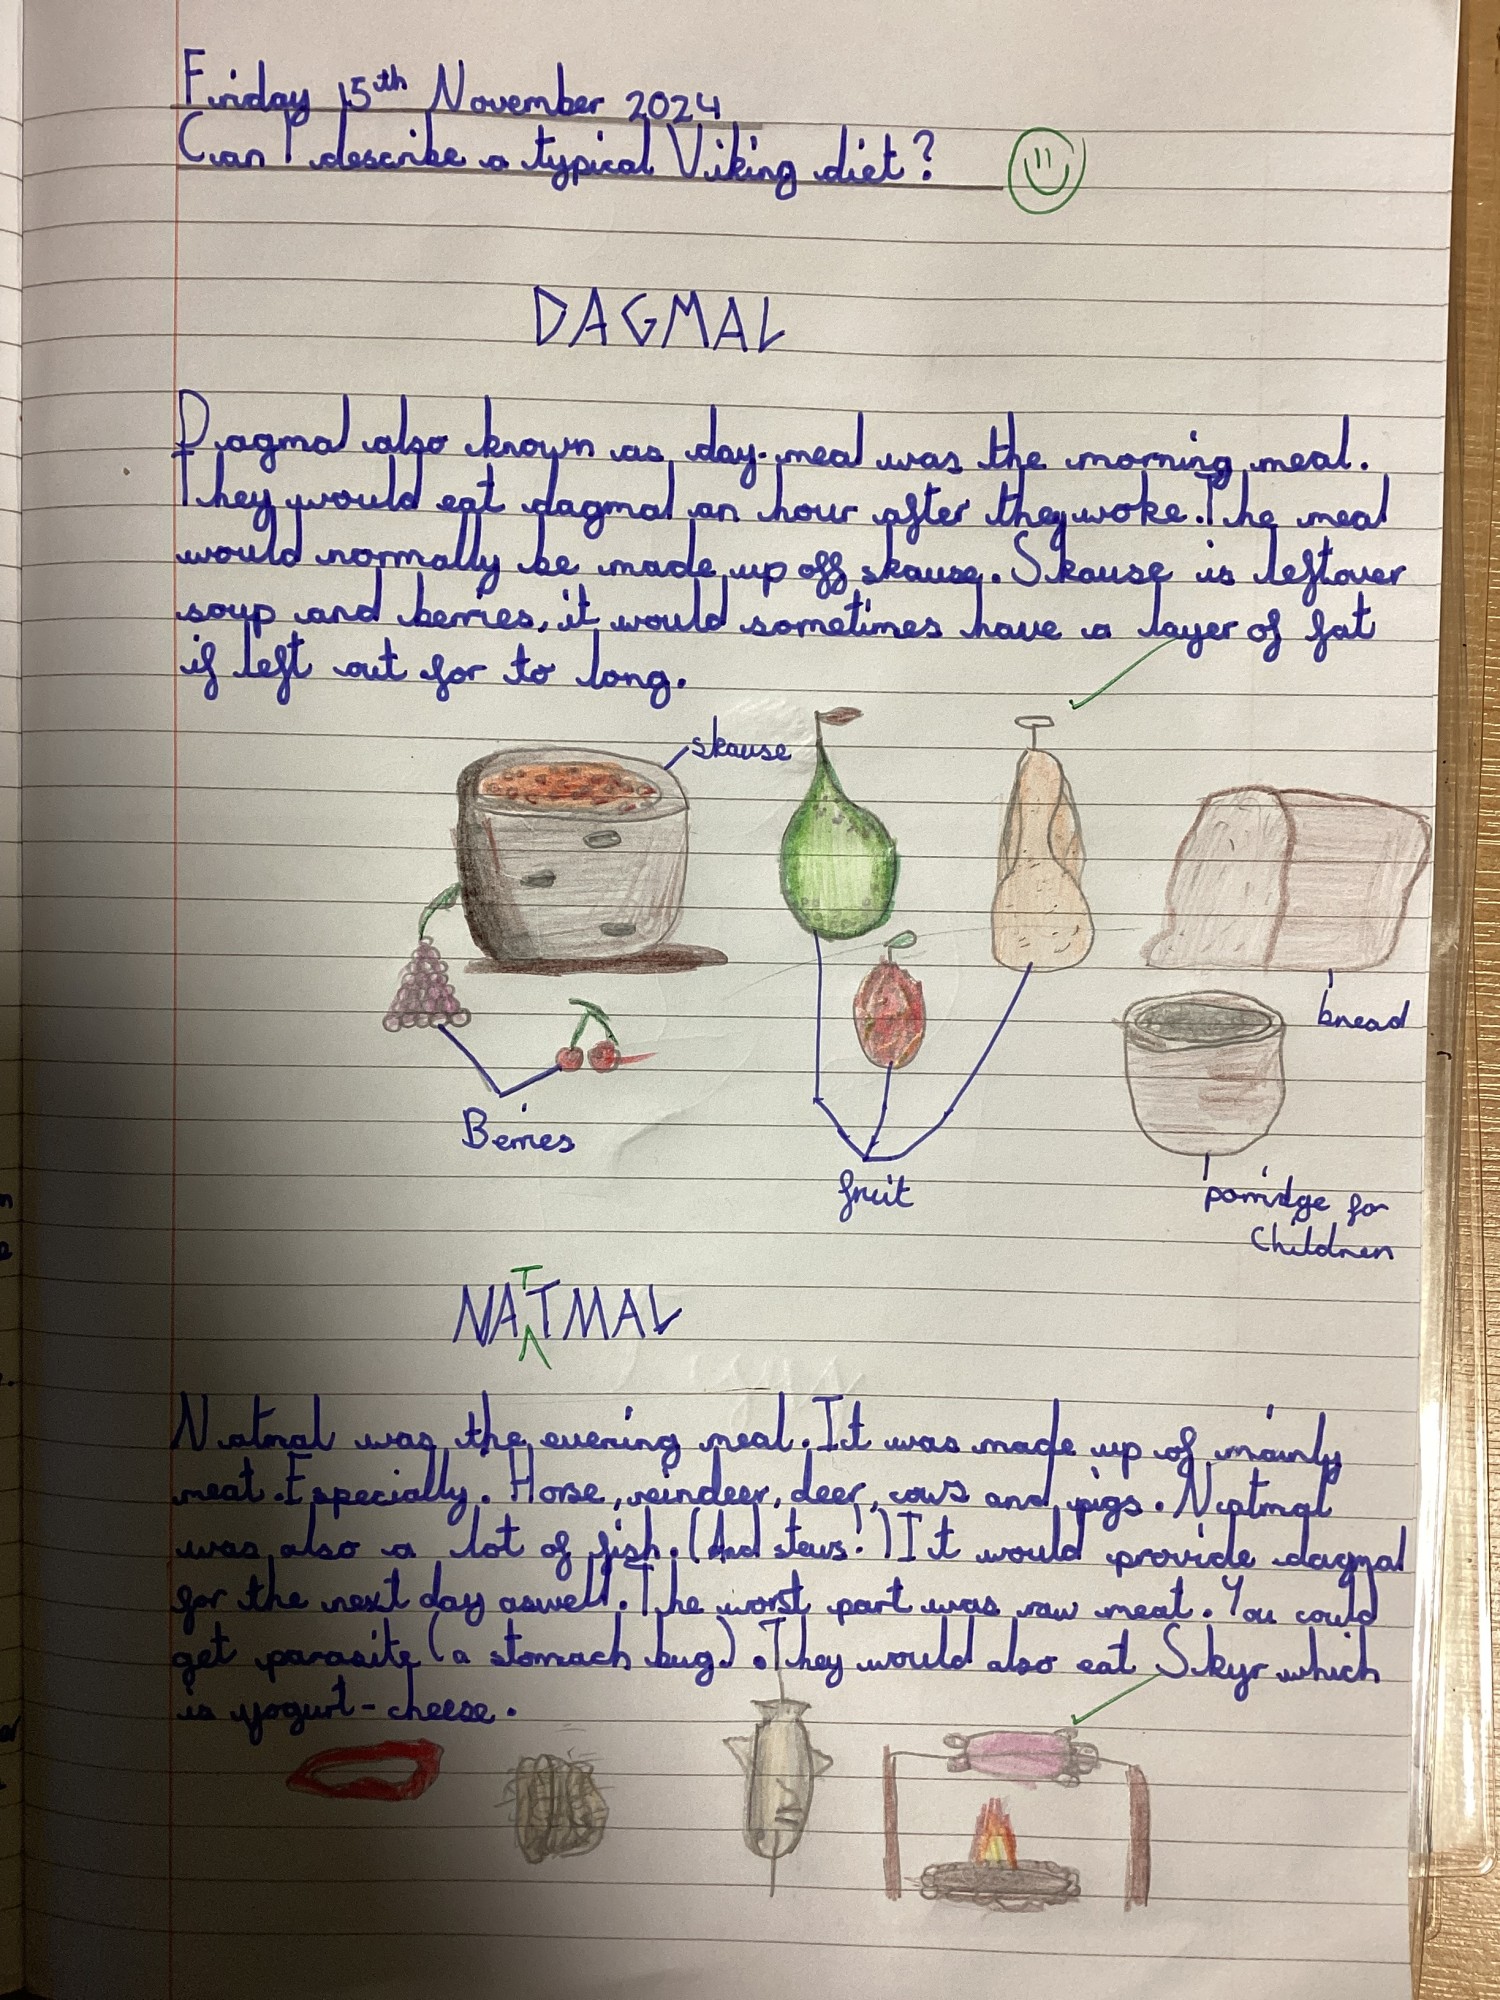 Friday 15th November 2024
Can I describe a typical Viking diet?
DAGMAL
Dagmal also known as day-meal was the morning meal.
They would eat dagmal an hour after they woke. The meal
would normally be made up off skause. Skause is leftover
soup and berries, it would sometimes have a layer of fat
if left out for to long.
skause
bread
Berries
fruit
porridge for
Children
NATTMAL
Natmal was the evening meal. It was made up of mainly
meat. Especially. Horse, reindeer, deer, cows and pigs. Natmal
was also a lot of fish. (And stews!) It would provide dagmal
for the next day aswell. The worst part was raw meat. You could
get parasite (a stomach bug). They would also eat Skyr which
is yogurt-cheese.